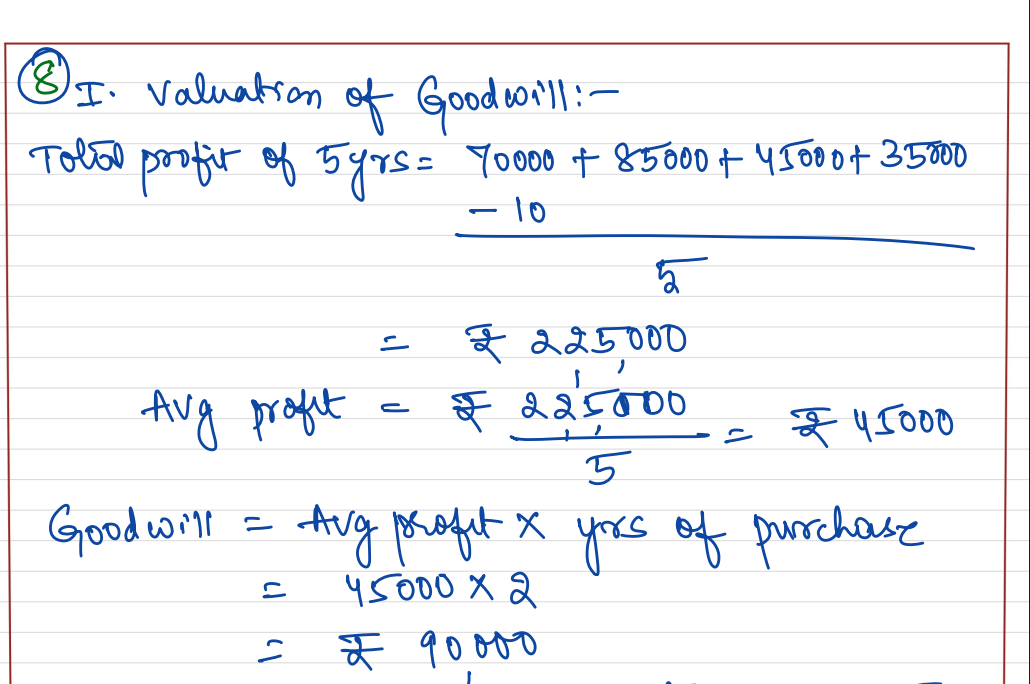 8 I. Valuation of Goodwill:-
Total profit of 5yrs = 70000 + 85000 + 45000 + 35000
- 10
5
= ₹ 225000
Avg profit = ₹ 225000 = ₹ 45000
5
Goodwill = Avg profit × yrs of purchase
= 45000 × 2
= ₹ 90000